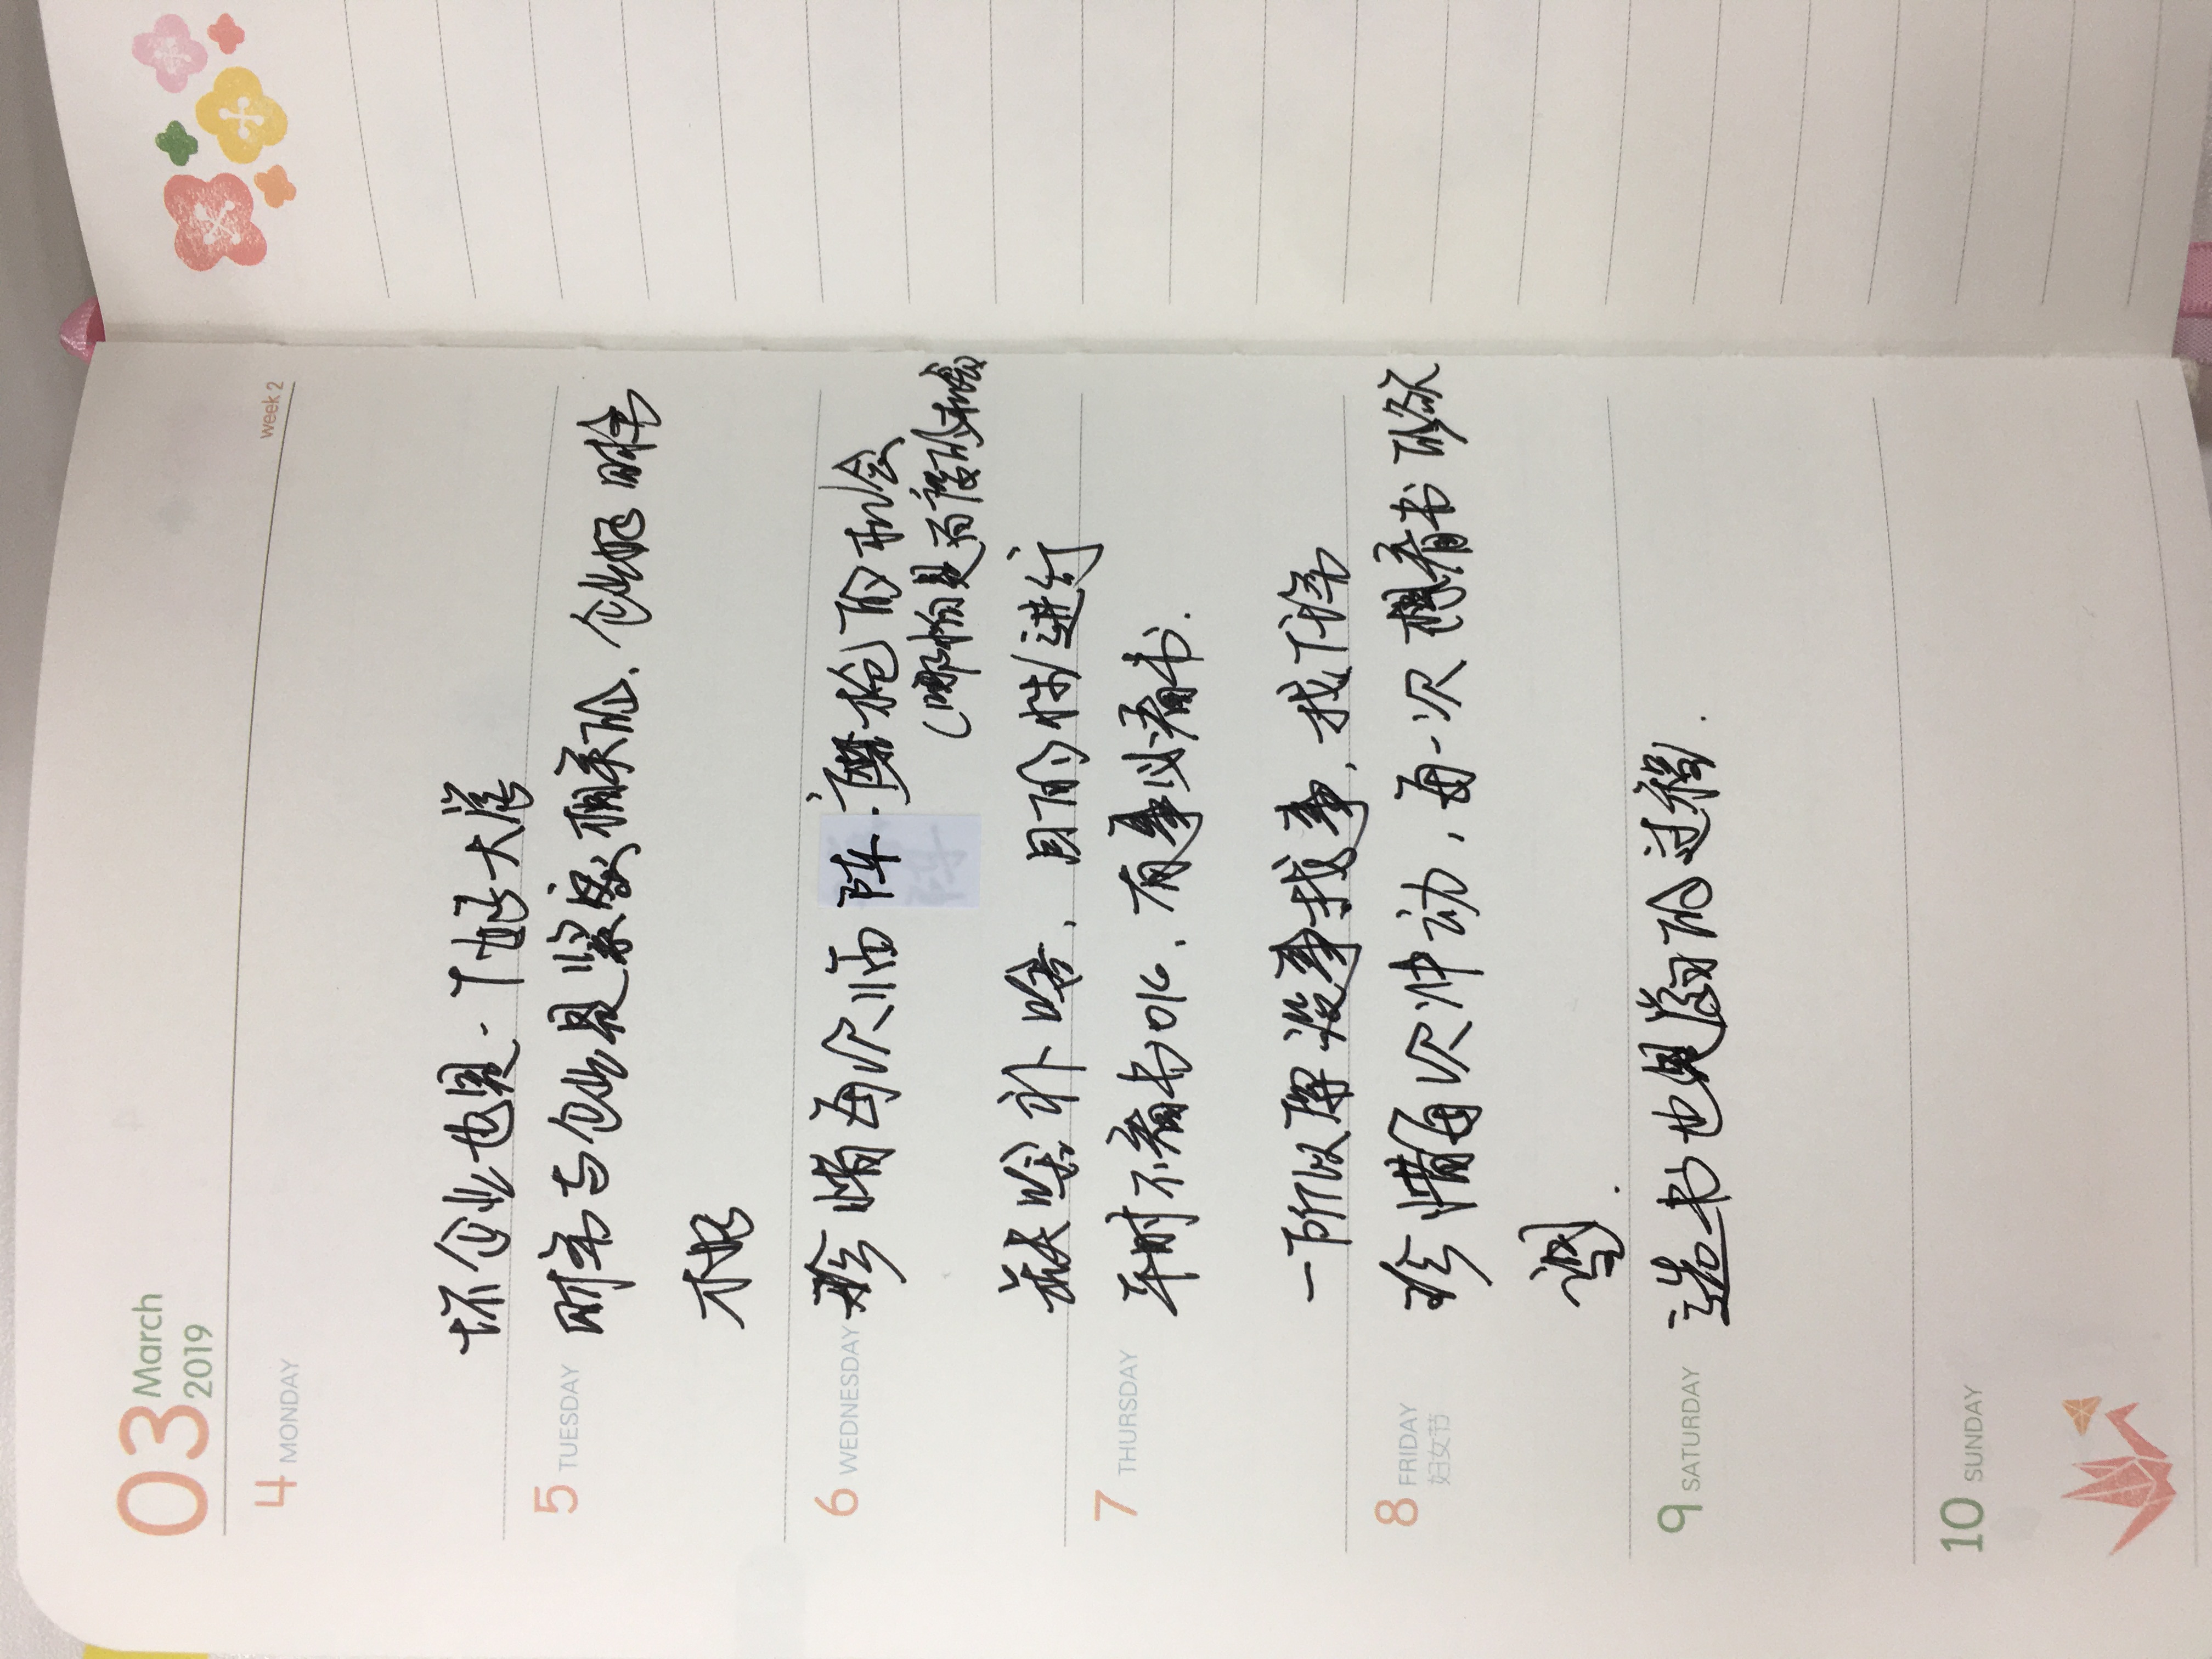 03 March
2019
week 2
4 MONDAY
坏企业也是一个好大学
5 TUESDAY
财务与企业是紧密相关的，企业好财务
才好
6 WEDNESDAY
珍惜每次临阵磨枪的机会
（哪怕是百度的机会）
缺啥补啥，目的性进行
7 THURSDAY
平时不看书OK，有事必看书.
一所以要没事找事，找任务
8 FRIDAY
妇女节
珍惜每次冲动，每一次想看书的欲
望.
9 SATURDAY
选书也是学习的过程.
10 SUNDAY